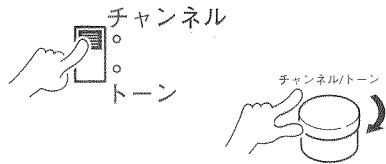 チャンネル
トーン
チャンネル/トーン